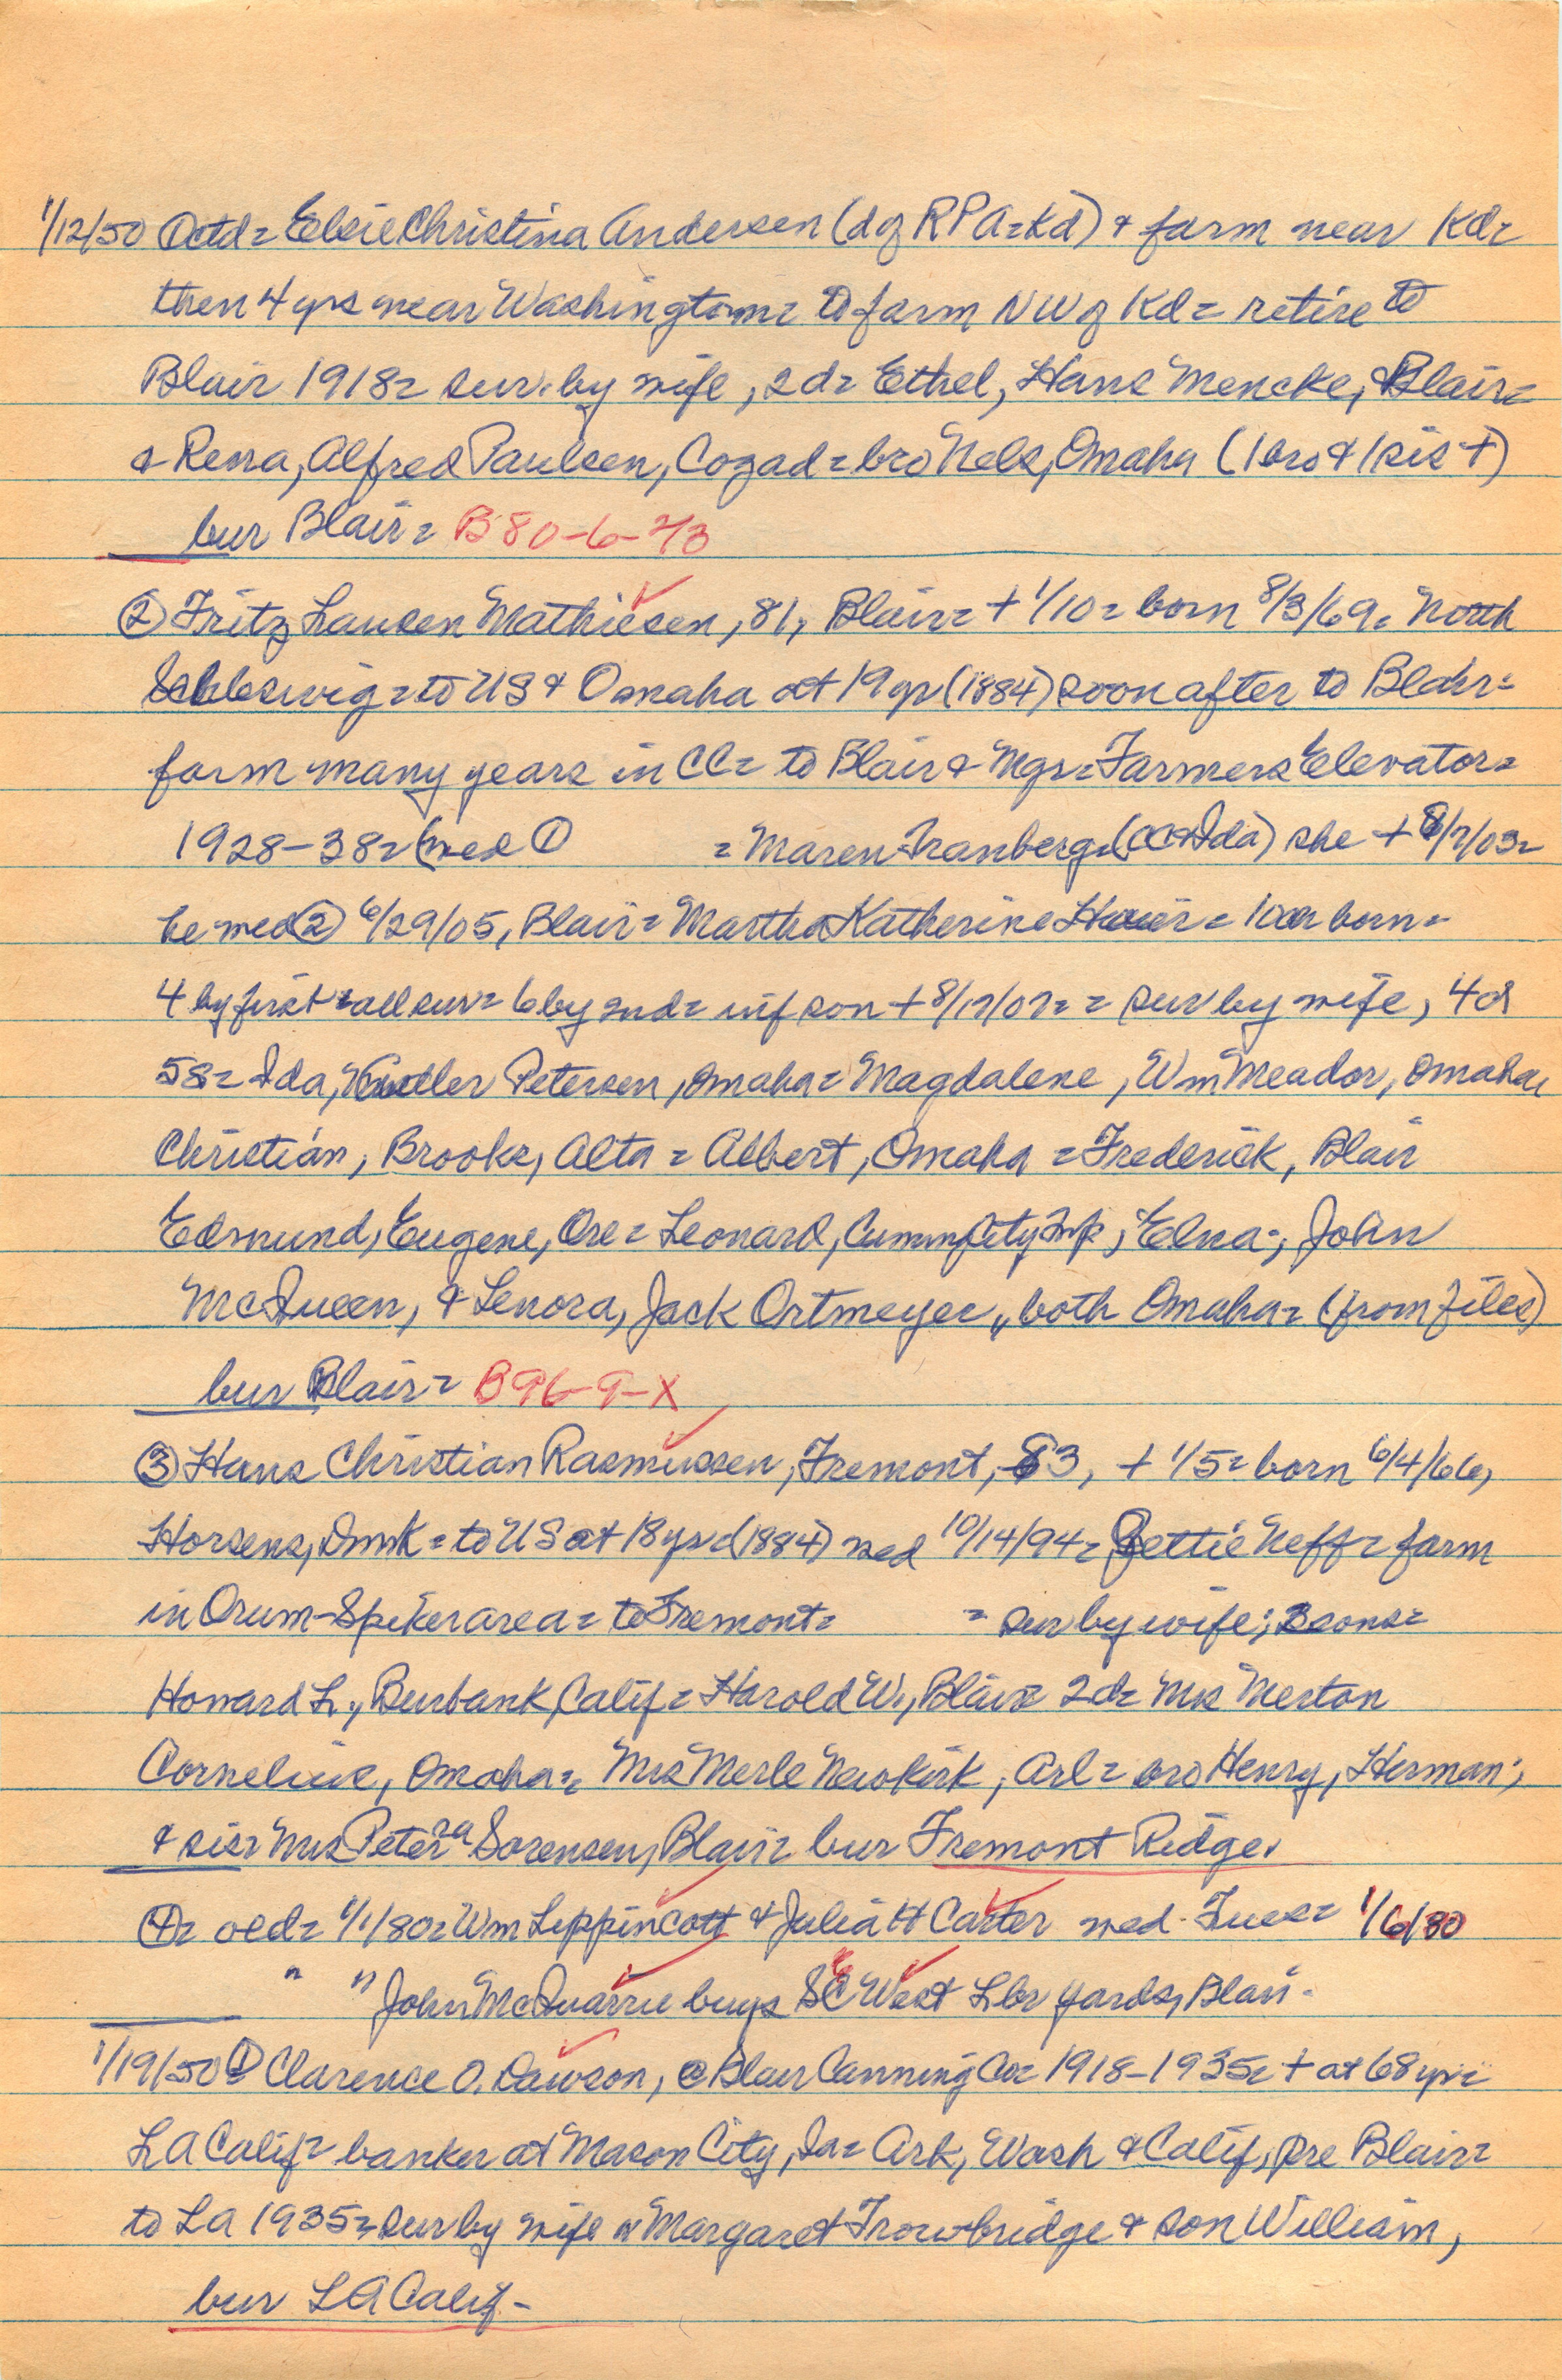 1/12/50 Octd = Elsie Christina Andersen (d of RPA = Kd) & farm near Kd =
then 4 yrs near Washington = to farm NW of Kd = retire to
Blair 1918 = sur. by wife, 2d = Ethel, Hans Mencke, Blair =
& Rena, Alfred Paulsen, Cozad = bro Nels, Omaha (1 bro & 1 sis +)
bur Blair = B 80-6-
② Fritz Lausen Mathiesen, 81, Blair = + 1/10 = born 8/3/69 = North
Schleswig = to US & Omaha at 19 yr (1884) soon after to Blair =
farm many years in CC = to Blair & Mgr = Farmers Elevator =
1928-38 = (med ① = Maren Tranberg = (CC & Ida) she + 8/7/03 =
he med ② 6/29/05, Blair = Martha Katherine = 10 born =
4 by first = all sur = 6 by 2nd = inf son + 8/17/07 = = sur by wife, 4d
5s = Ida, Petersen, Omaha = Magdalene, Wm Meador, Omaha
Christian, Brooks, Alta = Albert, Omaha = Frederick, Blair
Edmund, Eugene, Ore = Leonard, Cumm City Twp; Elna =, John
McQueen, & Lenora, Jack Ortmeyer,, both Omaha = (from files)
bur Blair = B96-9-X
③ Hans Christian Rasmussen, Fremont, 83, + 1/5 = born 6/4/66,
Horsens, Dmk = to US at 18 yrs = (1884) med 10/14/94 = Neff = farm
in Orum-Spiker area = to Fremont = = sur by wife; 2 sons =
Howard L., Burbank, Calif = Harold W., Blair = 2d = Mrs Merton
Cornelius, Omaha =, Mrs Merle Newkirk, Arl = bro Henry, Herman;
& sis = Mrs Peter Sorensen, Blair = bur Fremont Ridge.
④ = old = 1/1/80 = Wm Lippincott & Julia H Carter med. Tues = 1/6/80
" " John McQuarrie buys SC West Lbr yards, Blair.
1/19/50 ① Clarence O. Dawson, @ Blair Canning Co = 1918-1935 = + at 68 yr =
LA Calif = banker at Mason City, Ia = Ark, Wash & Calif, pre Blair =
to LA 1935 = sur by wife = Margaret Trowbridge & son William,
bur LA Calif -